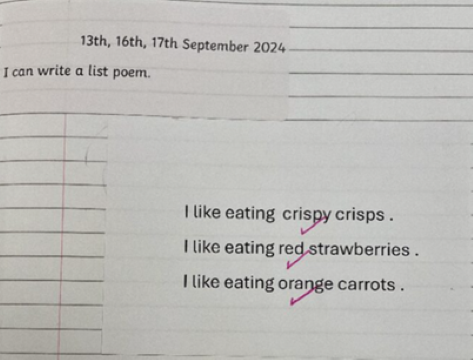 13th, 16th, 17th September 2024
I can write a list poem.
I like eating crispy crisps .
I like eating red strawberries .
I like eating orange carrots .